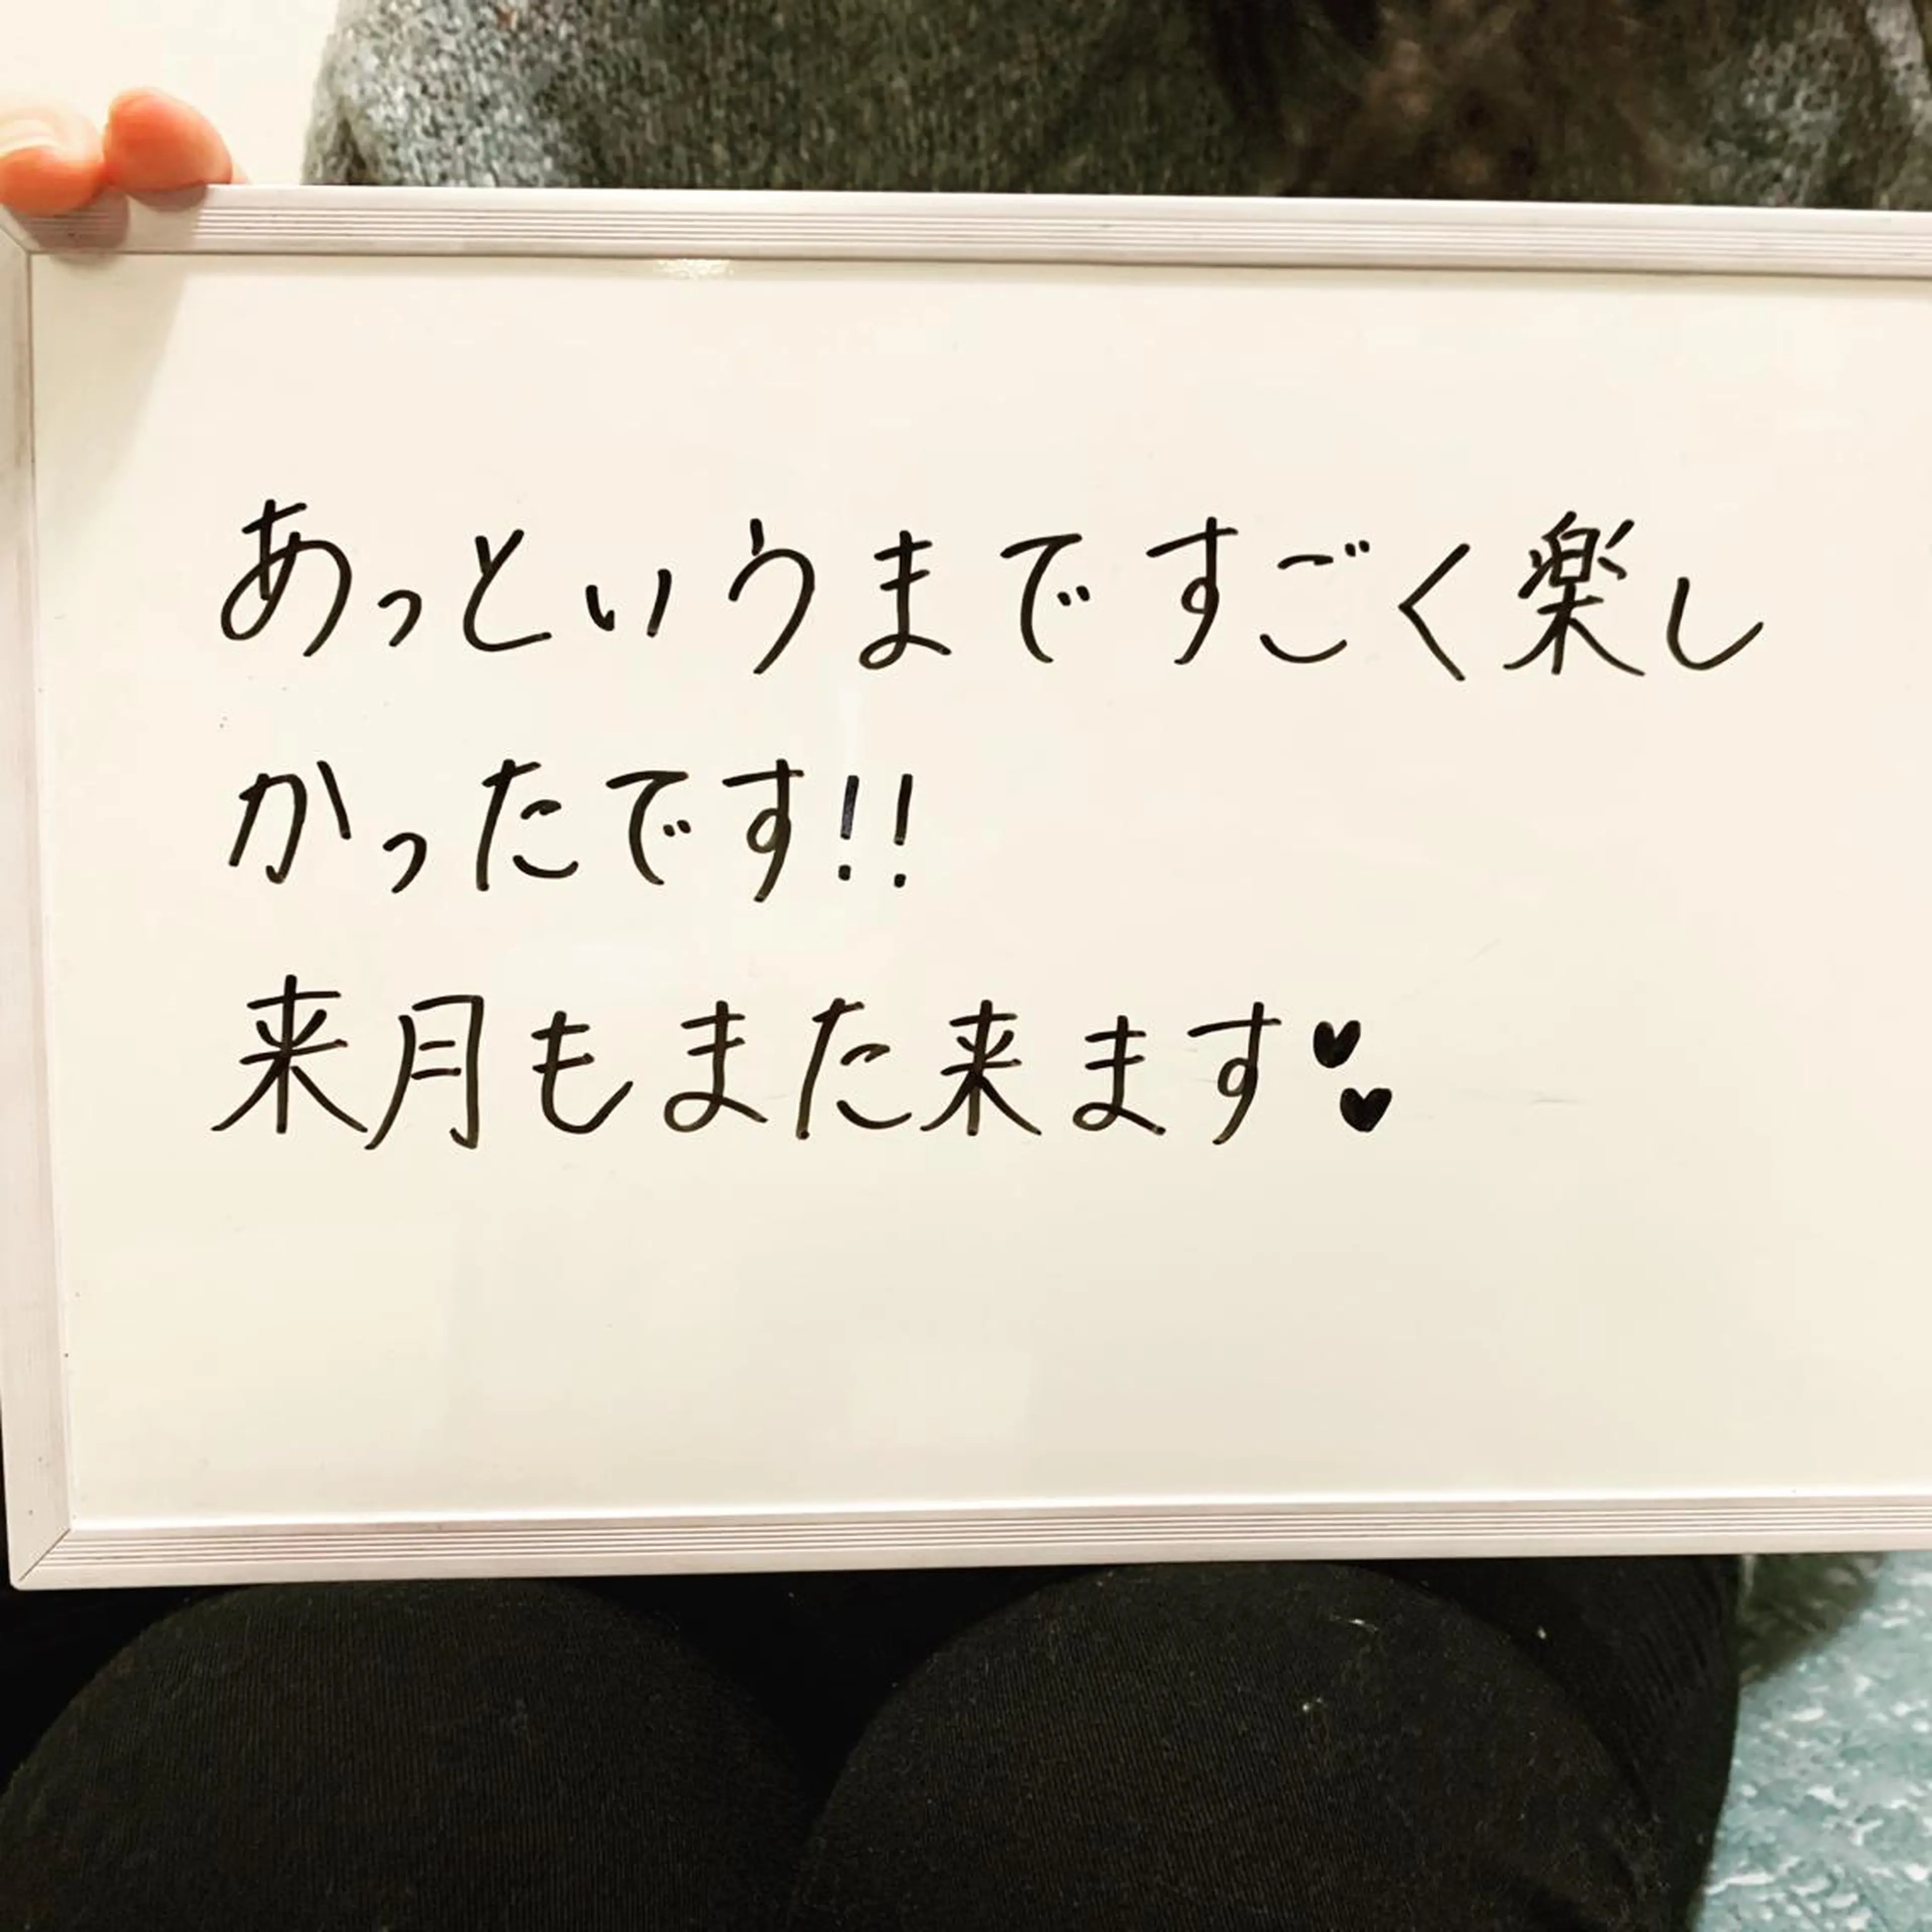 あっというまですごく楽し
かったです!!
来月もまた来ます♥♥